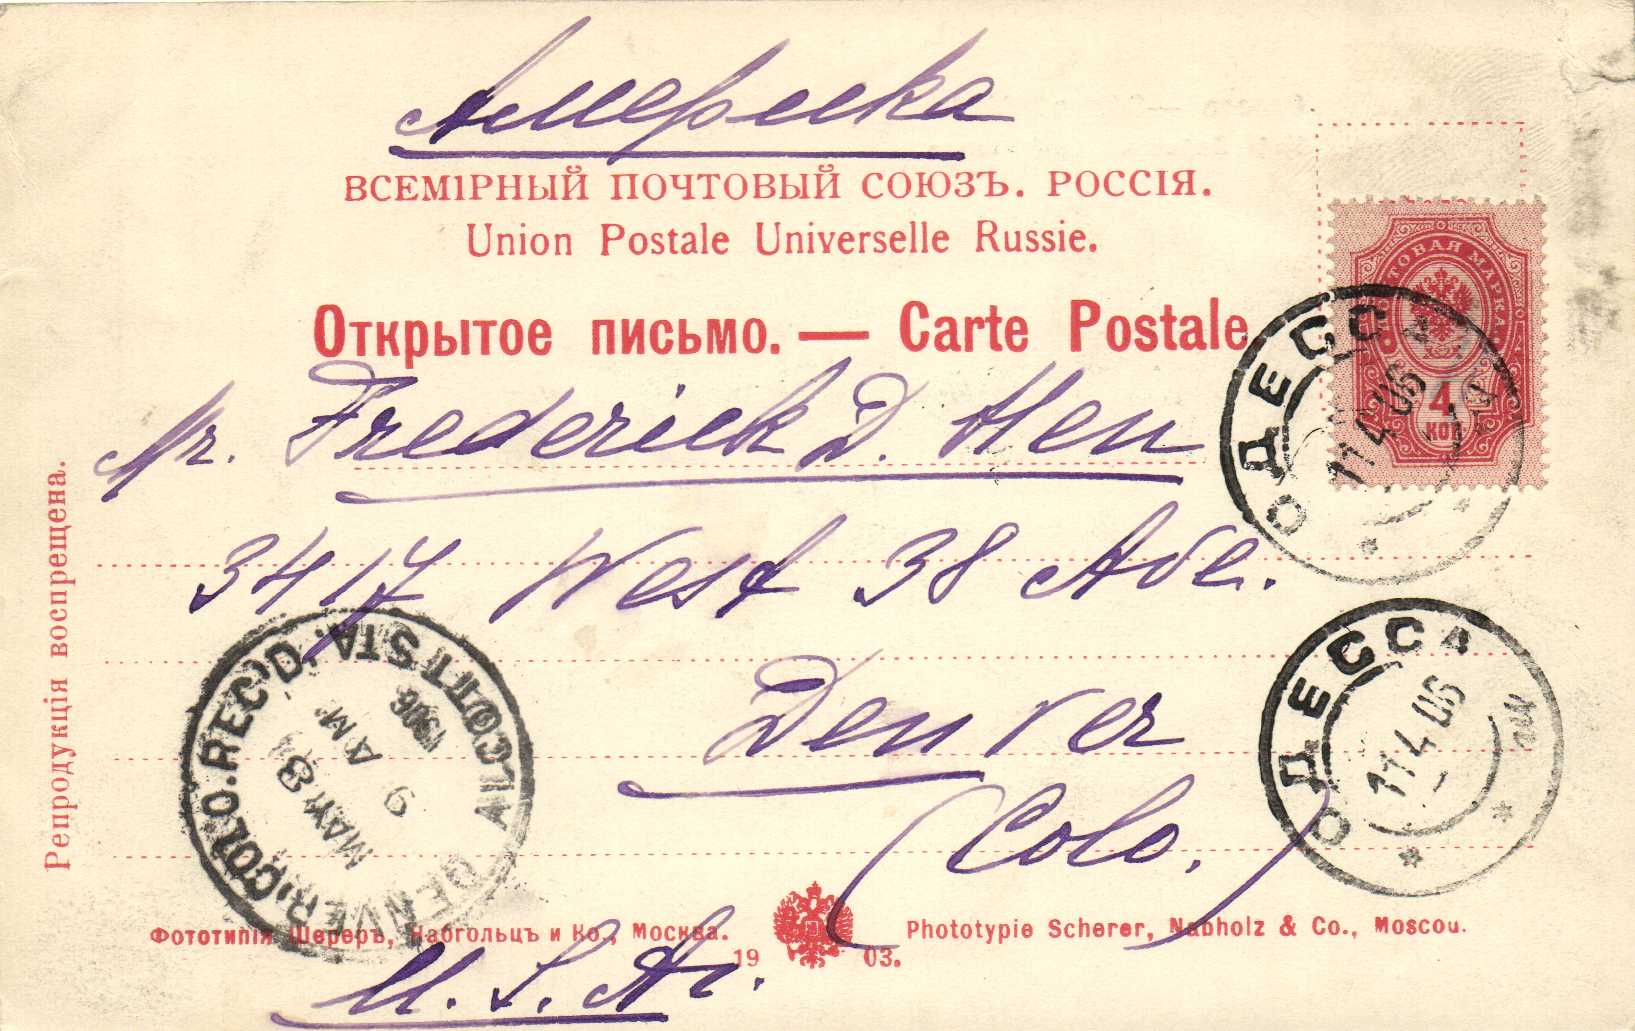 Америка
ВСЕМІРНЫЙ ПОЧТОВЫЙ СОЮЗЪ. РОССІЯ.
Union Postale Universelle Russie.
Открытое письмо. — Carte Postale
ТОВАЯ МАРКА
4
КОП
ОДЕССА
11 4 06
Mr. Frederick D. Hen
3417 West 38 Ave.
Denver
(Colo.)
U. S. Ar.
ОДЕССА
11 4 06
DENVER.COLO.REC'D.
ALCOTT STA.
MAY 8
9 AM
1906
Репродукція воспрещена.
Фототипія Шереръ, Набгольцъ и Ко., Москва.
1903.
Phototypie Scherer, Nabholz & Co., Moscou.